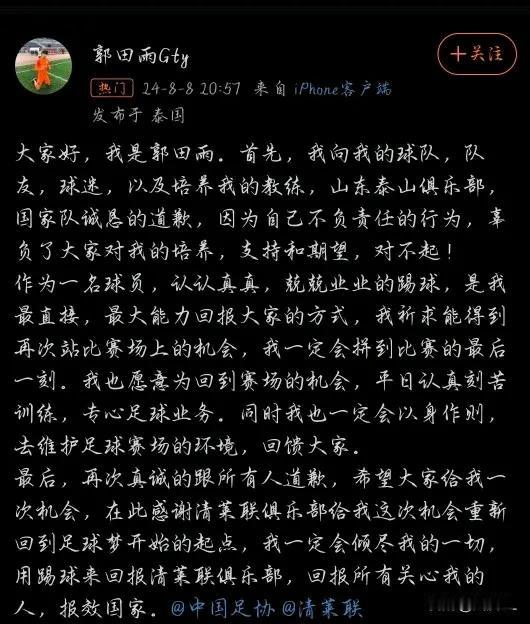 郭田雨Gty
+关注
热门 24-8-8 20:57 来自 iPhone客户端
发布于 泰国
大家好，我是郭田雨。首先，我向我的球队，队
友，球迷，以及培养我的教练，山东泰山俱乐部，
国家队诚恳的道歉，因为自己不负责任的行为，辜
负了大家对我的培养，支持和期望，对不起！
作为一名球员，认认真真，兢兢业业的踢球，是我
最直接，最大能力回报大家的方式，我祈求能得到
再次站比赛场上的机会，我一定会拼到比赛的最后
一刻。我也愿意为回到赛场的机会，平日认真刻苦
训练，专心足球业务。同时我也一定会以身作则，
去维护足球赛场的环境，回馈大家。
最后，再次真诚的跟所有人道歉，希望大家给我一
次机会，在此感谢清莱联俱乐部给我这次机会重新
回到足球梦开始的起点，我一定会倾尽我的一切，
用踢球来回报清莱联俱乐部，回报所有关心我的
人，报效国家。@中国足协 @清莱联